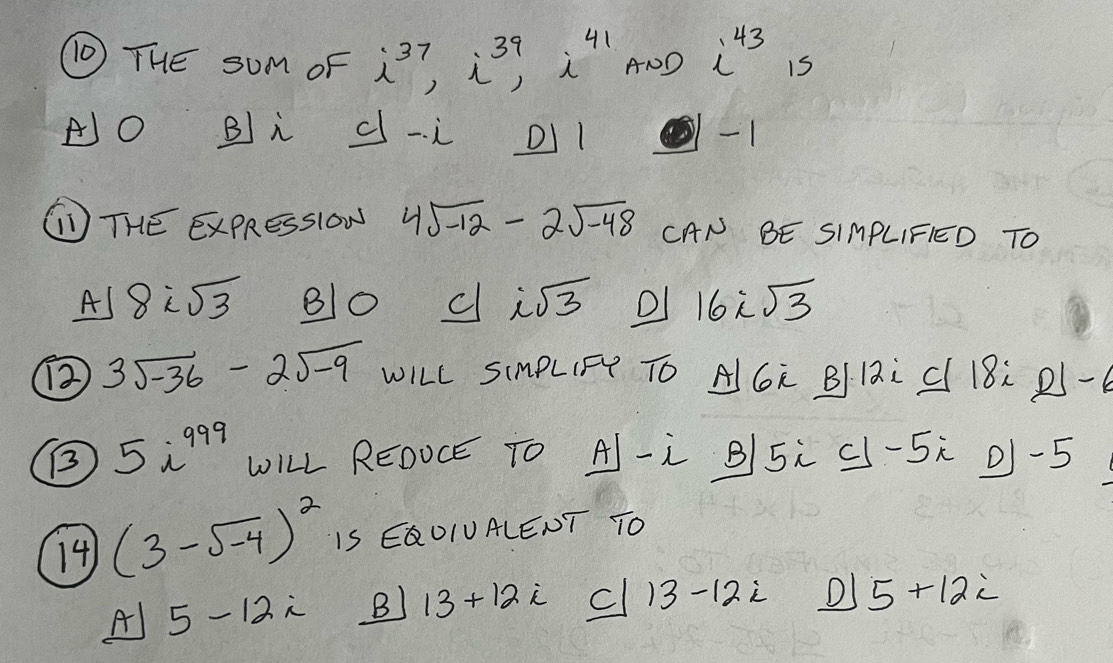 ⑩ THE SUM OF i³⁷, i³⁹, i⁴¹ AND i⁴³ IS
A) 0 B) i C) -i D) 1 -1
⑪ THE EXPRESSION 4√-12 - 2√-48 CAN BE SIMPLIFIED TO
A) 8i√3 B) 0 C) i√3 D) 16i√3
⑫ 3√-36 - 2√-9 WILL SIMPLIFY TO A) 6i B) 12i C) 18i D) -6
⑬ 5i⁹⁹⁹ WILL REDUCE TO A) -i B) 5i C) -5i D) -5
⑭ (3-√-4)² IS EQUIVALENT TO
A) 5-12i B) 13+12i C) 13-12i D) 5+12i